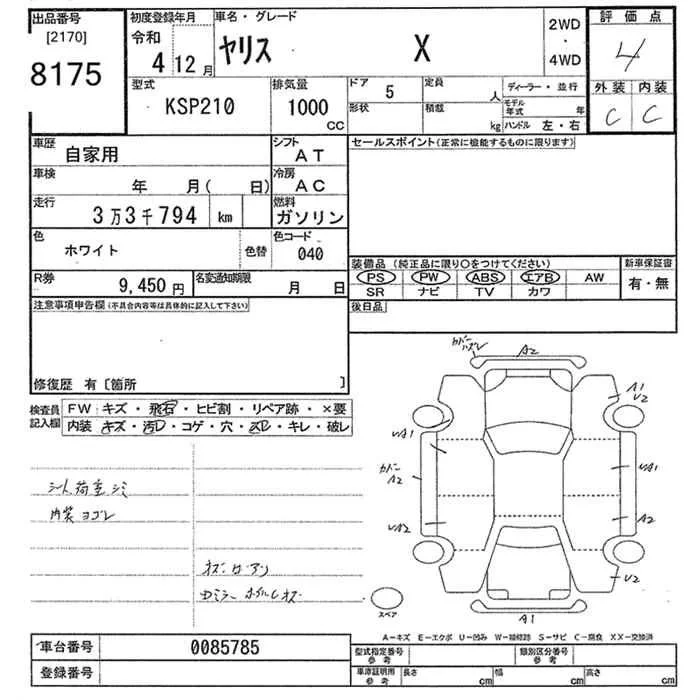 出品番号
[2170]
8175
初度登録年月
令和
4 12月
車名・グレード
ヤリス X
2WD
・
4WD
評価点
4
外装 内装
C C
型式
KSP210
排気量
1000
CC
ドア 5
形状
定員 人
積載 kg
ディーラー・並行
モデル年式 年
ハンドル 左・右
車歴
自家用
シフト
AT
車検
年 月( 日)
冷房
AC
走行
3万3千794 km
燃料
ガソリン
色
ホワイト
色替
色コード
040
R券
9,450円
名変通知期限
月 日
セールスポイント(正常に機能するものに限ります)
装備品(純正品に限り○をつけてください)
PS PW ABS エアB AW
SR ナビ TV カワ
新車保証書
有・無
後日品
注意事項申告欄(不具合内容等は具体的に記入して下さい)
修復歴 有〔箇所 〕
検査員
記入欄
FW:キズ・飛石・ヒビ割・リペア跡・×要
内装:キズ・汚レ・コゲ・穴・スレ・キレ・破レ
シート荷室シミ
内装ヨゴレ
カバー
ハズレ
A2
A1
U2
UA1
カバー
A2
UA1
UA2
A2
U2
A1
スペア
A-キズ E-エクボ U-凹み W-補修跡 S-サビ C-腐食 XX-交換済
車台番号
0085785
登録番号
型式指定番号
参考
類別区分番号
参考
車庫証明用
参考
長さ cm
幅 cm
高さ cm